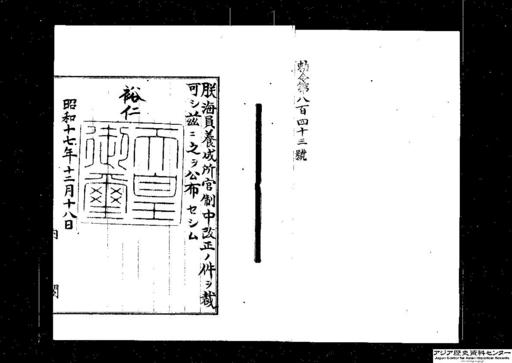 勅令第八百四十三號
朕海員養成所官制中改正ノ件ヲ裁
可シ茲ニ之ヲ公布セシム
裕仁
天皇
御璽
昭和十七年十二月十八日
内閣
アジア歴史資料センター
Japan Center for Asian Historical Records